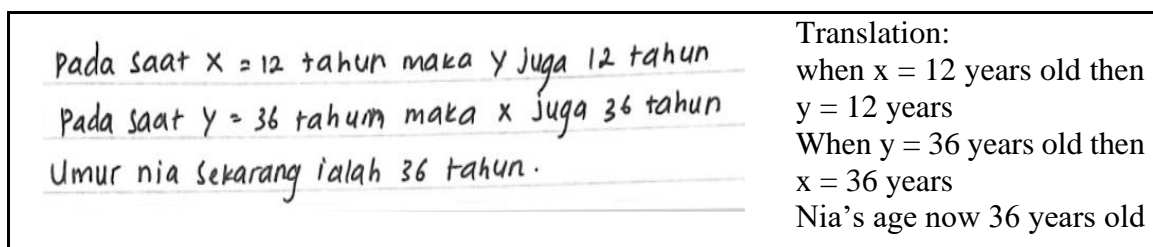 Pada saat x = 12 tahun maka y juga 12 tahun
Pada saat y = 36 tahum maka x juga 36 tahun
Umur nia sekarang ialah 36 tahun.
Translation:
when x = 12 years old then
y = 12 years
When y = 36 years old then
x = 36 years
Nia's age now 36 years old